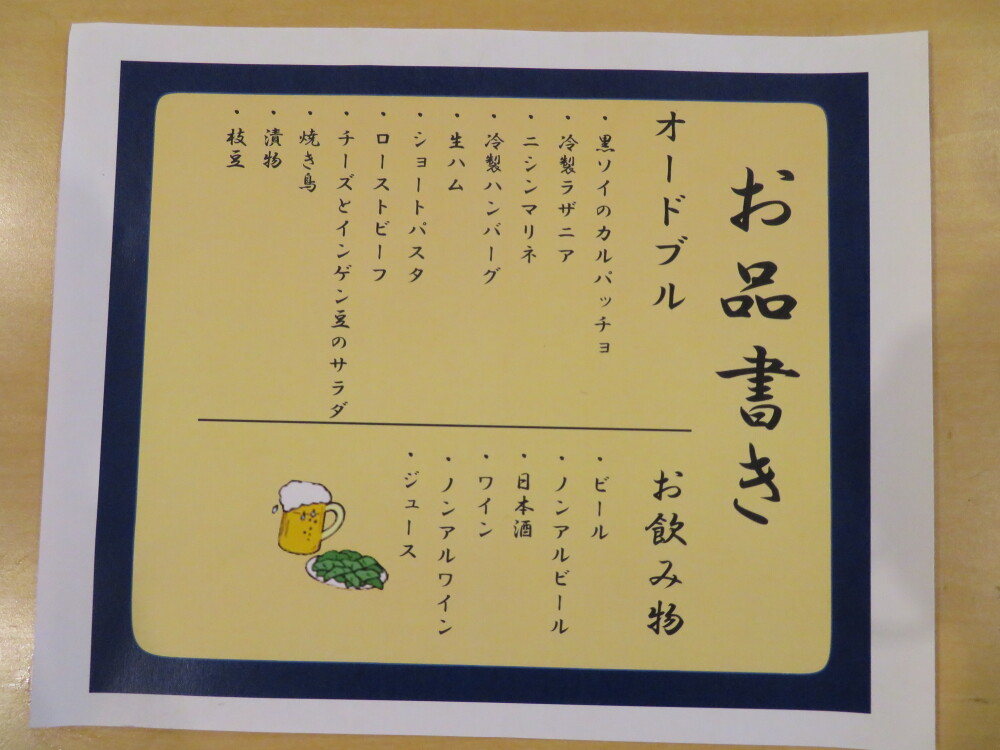 お品書き
オードブル
・黒ソイのカルパッチョ
・冷製ラザニア
・ニシンマリネ
・冷製ハンバーグ
・生ハム
・ショートパスタ
・ローストビーフ
・チーズとインゲン豆のサラダ
・焼き鳥
・漬物
・枝豆
お飲み物
・ビール
・ノンアルビール
・日本酒
・ワイン
・ノンアルワイン
・ジュース